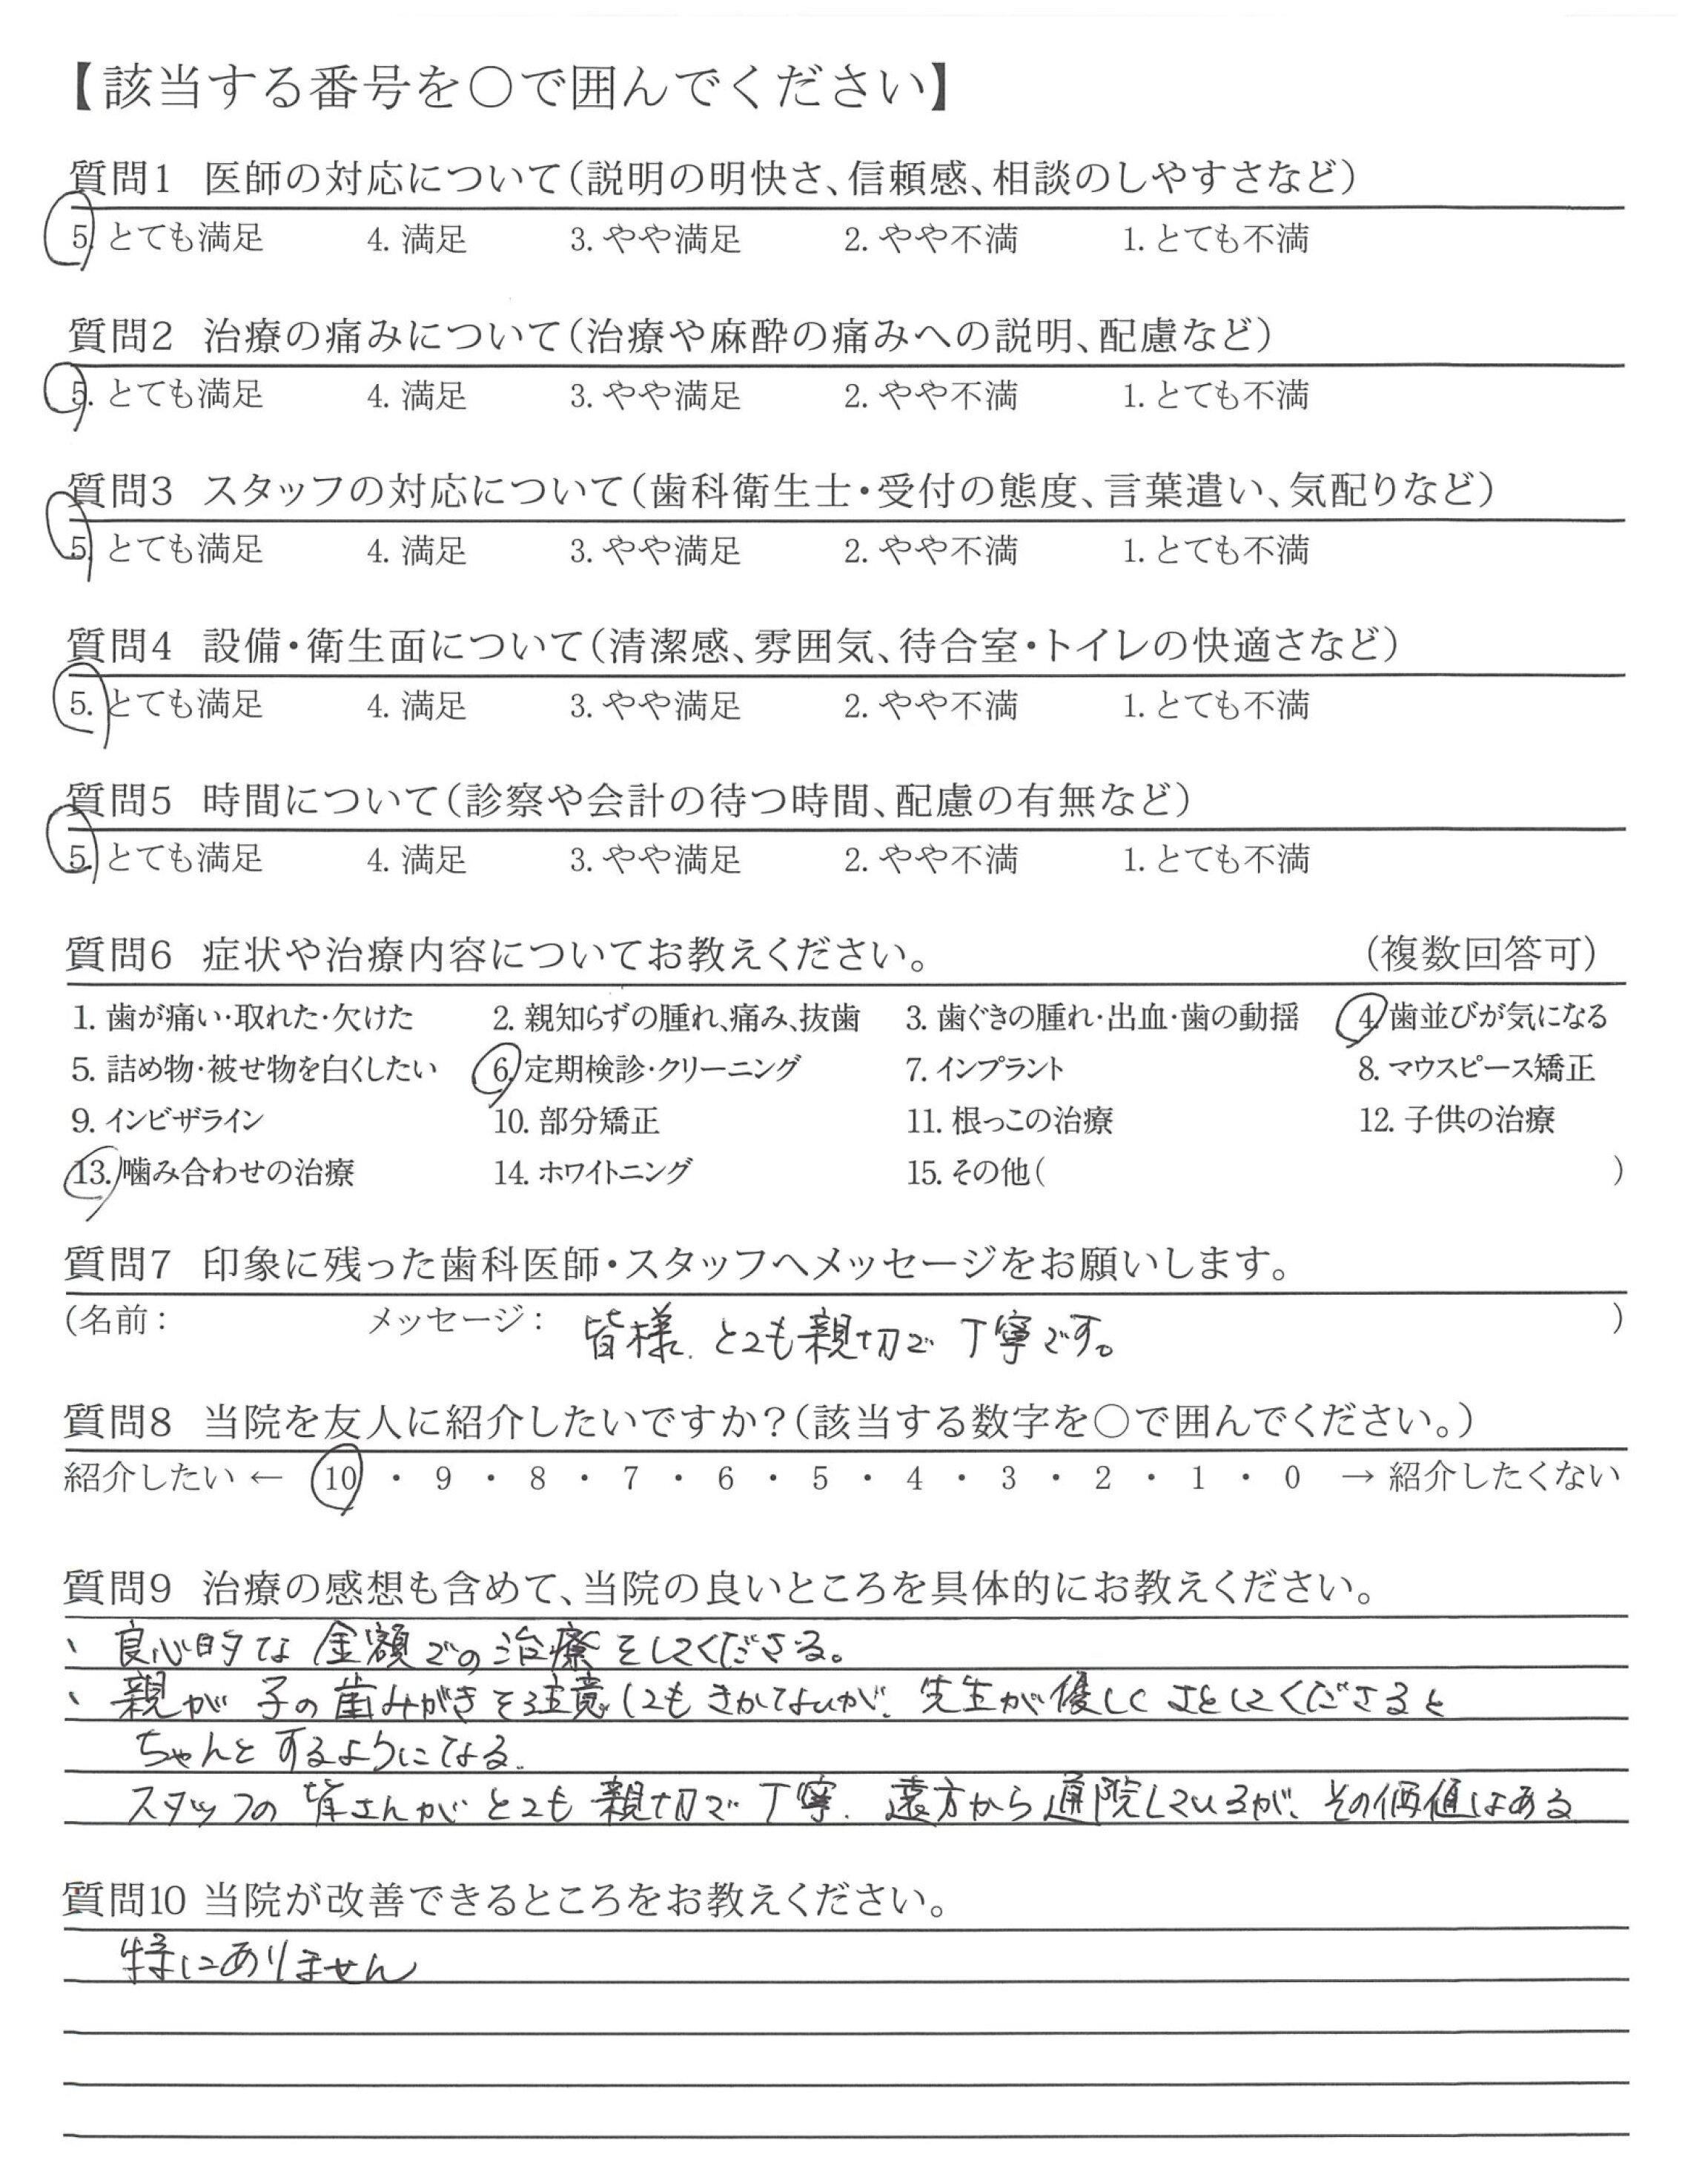 【該当する番号を○で囲んでください】
質問1 医師の対応について(説明の明快さ、信頼感、相談のしやすさなど)
5. とても満足 4. 満足 3. やや満足 2. やや不満 1. とても不満
質問2 治療の痛みについて(治療や麻酔の痛みへの説明、配慮など)
5. とても満足 4. 満足 3. やや満足 2. やや不満 1. とても不満
質問3 スタッフの対応について(歯科衛生士・受付の態度、言葉遣い、気配りなど)
5. とても満足 4. 満足 3. やや満足 2. やや不満 1. とても不満
質問4 設備・衛生面について(清潔感、雰囲気、待合室・トイレの快適さなど)
5. とても満足 4. 満足 3. やや満足 2. やや不満 1. とても不満
質問5 時間について(診察や会計の待つ時間、配慮の有無など)
5. とても満足 4. 満足 3. やや満足 2. やや不満 1. とても不満
質問6 症状や治療内容についてお教えください。 (複数回答可)
1. 歯が痛い・取れた・欠けた 2. 親知らずの腫れ、痛み、抜歯 3. 歯ぐきの腫れ・出血・歯の動揺 4. 歯並びが気になる
5. 詰め物・被せ物を白くしたい 6. 定期検診・クリーニング 7. インプラント 8. マウスピース矯正
9. インビザライン 10. 部分矯正 11. 根っこの治療 12. 子供の治療
13. 噛み合わせの治療 14. ホワイトニング 15. その他( )
質問7 印象に残った歯科医師・スタッフへメッセージをお願いします。
(名前: メッセージ: 皆様、とても親切で丁寧です。 )
質問8 当院を友人に紹介したいですか?(該当する数字を○で囲んでください。)
紹介したい ← 10 ・ 9 ・ 8 ・ 7 ・ 6 ・ 5 ・ 4 ・ 3 ・ 2 ・ 1 ・ 0 → 紹介したくない
質問9 治療の感想も含めて、当院の良いところを具体的にお教えください。
、良心的な金額での治療をしてくださる。
、親が子の歯みがきを注意してもきかないが、先生が優しくさとしてくださると
ちゃんとするようになる。
スタッフの皆さんがとても親切で丁寧、遠方から通院しているが、その価値はある
質問10 当院が改善できるところをお教えください。
特にありません